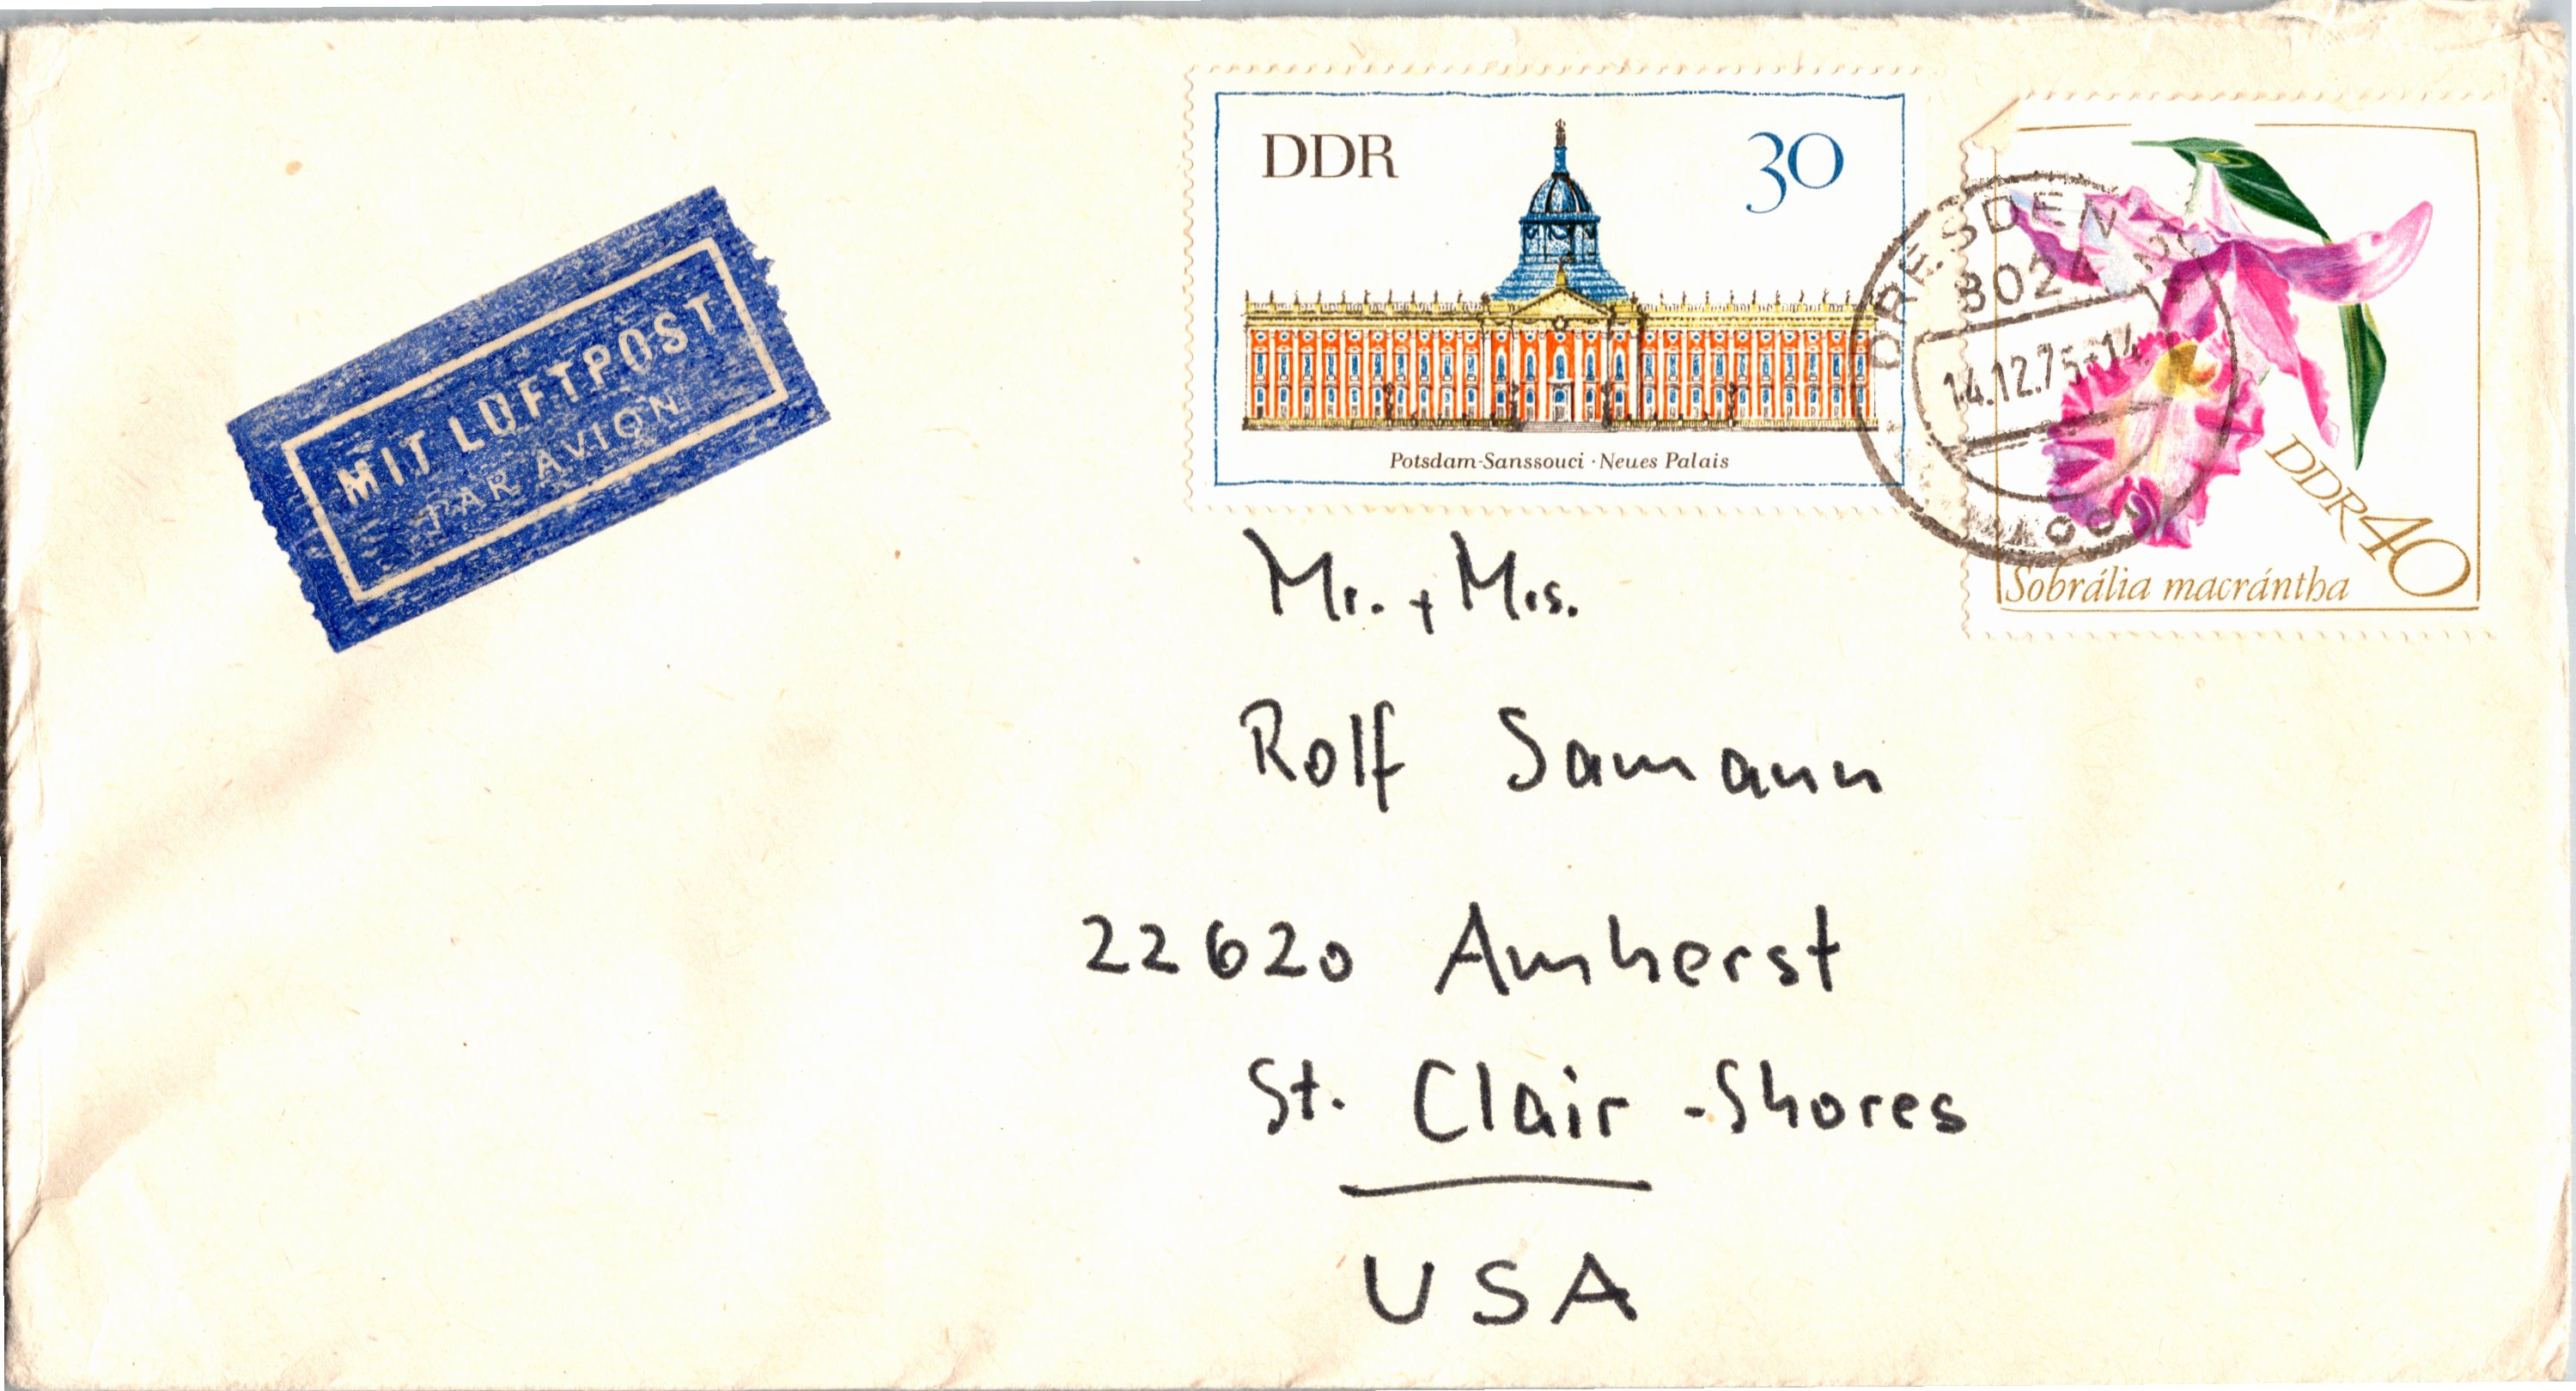 MIT LUFTPOST
PAR AVION
DDR 30
Potsdam-Sanssouci · Neues Palais
DRESDEN
802
14.12.75-14
DDR 40
Sobrália macrántha
Mr. + Mrs.
Rolf Samann
22620 Amherst
St. Clair-Shores
USA